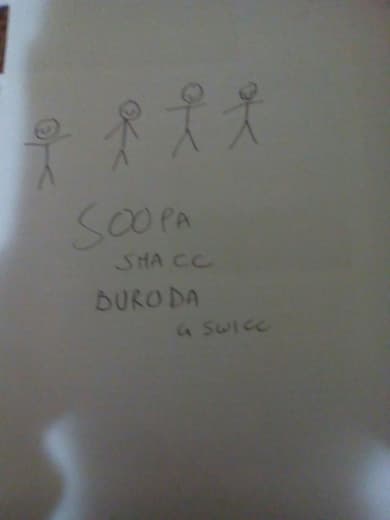 SOOPA
SMACC
BURODA
G SWICC